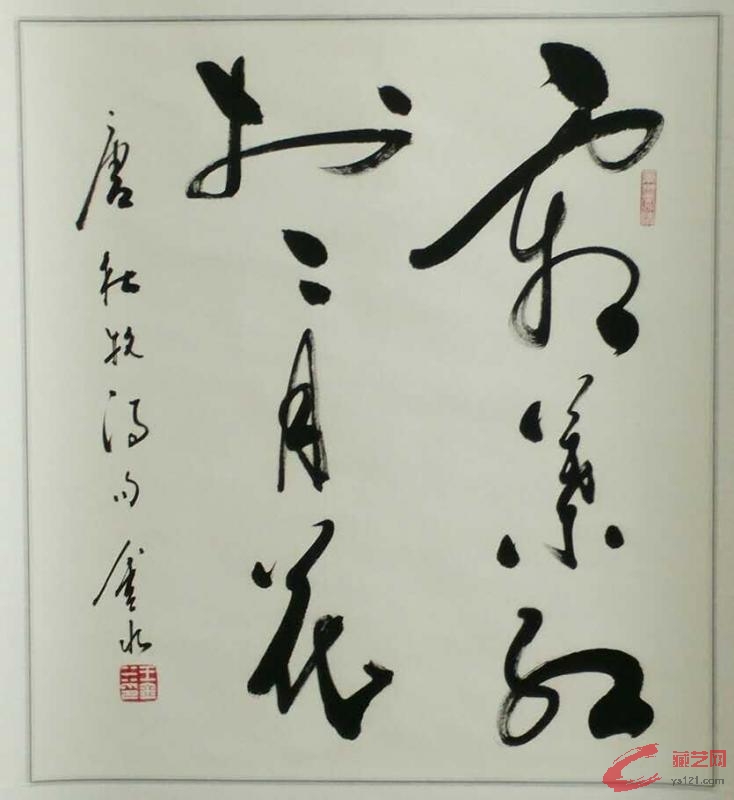 霜葉红
於二月花
唐杜牧詩句 金水
藏艺网
ys121.com